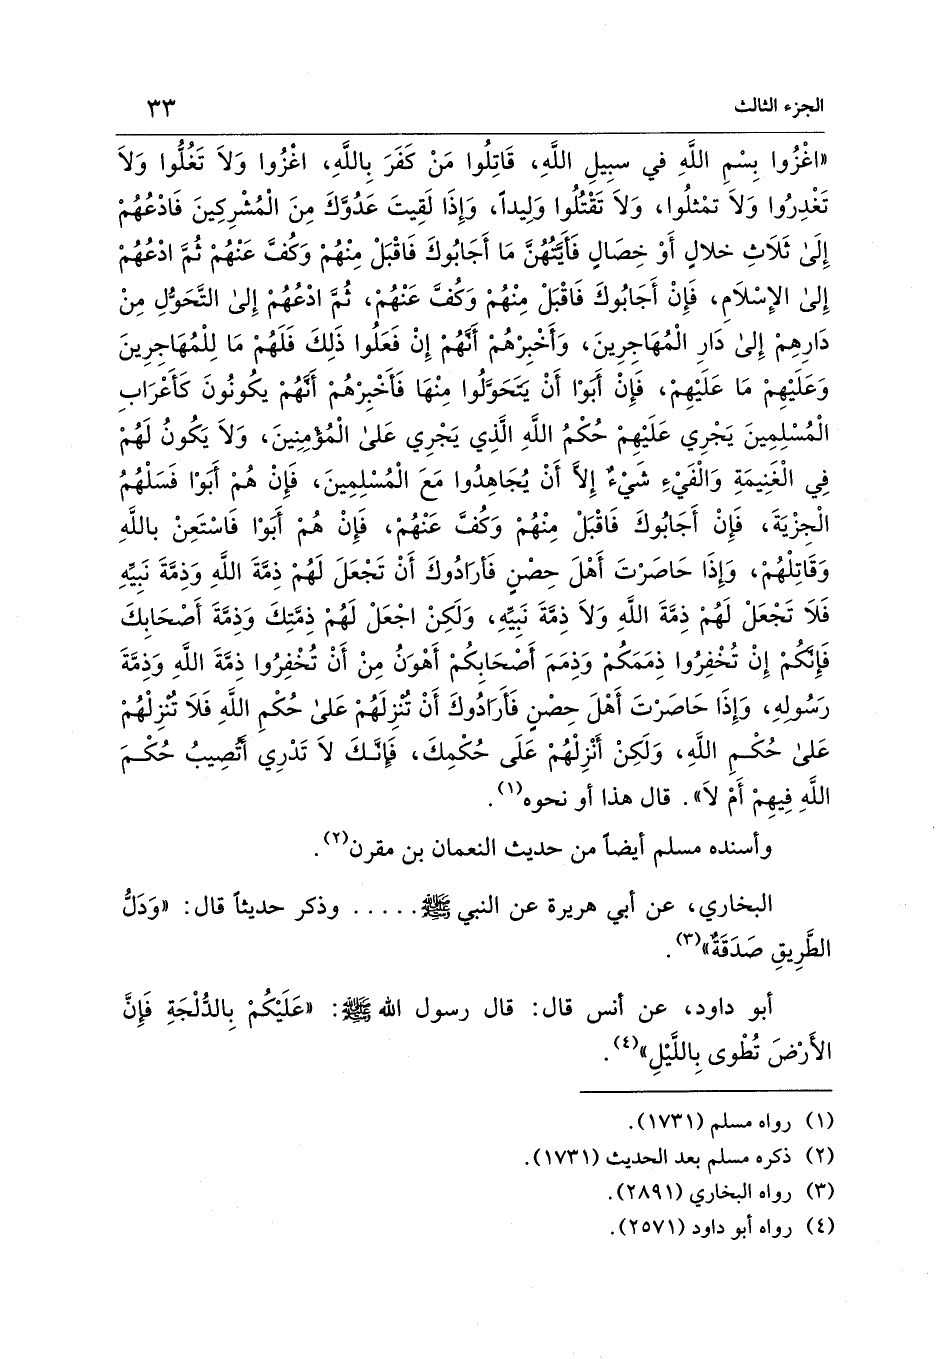 الجزء الثالث ٣٣
«اغْزُوا بِسْمِ اللَّهِ في سبيلِ اللَّهِ، قَاتِلُوا مَنْ كَفَرَ بِاللَّهِ، اغْزُوا وَلاَ تَغُلُّوا وَلاَ
تَغْدِرُوا وَلاَ تمْثلُوا، وَلاَ تَقْتُلُوا وَلِيداً، وَإِذَا لَقِيتَ عَدُوَّكَ مِنَ الْمُشْرِكِينَ فَادْعُهُمْ
إِلَىٰ ثَلَاثِ خلالٍ أَوْ خِصَالٍ فَأَيَّتُهُنَّ مَا أَجَابُوكَ فَاقْبَلْ مِنْهُمْ وَكُفَّ عَنْهُمْ ثُمَّ ادْعُهُمْ
إلىٰ الإسْلَامِ، فَإِنْ أَجَابُوكَ فَاقْبَلْ مِنْهُمْ وَكُفَّ عَنْهُمْ، ثُمَّ ادْعُهُمْ إلىٰ التَّحَوُّلِ مِنْ
دَارِهِمْ إلىٰ دَارِ الْمُهَاجِرِينَ، وَأَخْبِرْهُمْ أَنَّهُمْ إِنْ فَعَلُوا ذَلِكَ فَلَهُمْ مَا لِلْمُهَاجِرِينَ
وَعَلَيْهِمْ مَا عَلَيْهِمْ، فَإِنْ أَبَوْا أَنْ يَتَحَوَّلُوا مِنْهَا فَأَخْبِرْهُمْ أَنَّهُمْ يكُونُونَ كَأَعْرَابِ
الْمُسْلِمِينَ يَجْرِي عَلَيْهِمْ حُكْمُ اللَّهِ الَّذِي يَجْرِي عَلىٰ الْمُؤْمِنِينَ، وَلاَ يَكُونُ لَهُمْ
فِي الْغَنِيمَةِ وَالْفَيْءِ شَيْءٌ إِلاَّ أَنْ يُجَاهِدُوا مَعَ الْمُسْلِمِينَ، فَإِنْ هُمْ أَبَوْا فَسَلْهُمُ
الْجِزْيَةَ، فَإِنْ أَجَابُوكَ فَاقْبَلْ مِنْهُمْ وَكُفَّ عَنْهُمْ، فَإِنْ هُمْ أَبَوْا فَاسْتَعِنْ باللَّهِ
وَقَاتِلْهُمْ، وَإِذَا حَاصَرْتَ أَهْلَ حِصْنٍ فَأَرَادُوكَ أَنْ تَجْعَلَ لَهُمْ ذِمَّةَ اللَّهِ وَذِمَّةَ نَبِيِّهِ
فَلَا تَجْعَلْ لَهُمْ ذِمَّةَ اللَّهِ وَلاَ ذِمَّةَ نَبِيِّهِ، وَلَكِنْ اجْعَلْ لَهُمْ ذِمَّتِكَ وَذِمَّةَ أَصْحَابِكَ
فَإِنَّكُمْ إِنْ تُخْفِرُوا ذِمَمَكُمْ وَذِمَمَ أَصْحَابِكُمْ أَهْوَنُ مِنْ أَنْ تُخْفِرُوا ذِمَّةَ اللَّهِ وَذِمَّةَ
رَسُولِهِ، وَإِذَا حَاصَرْتَ أَهْلَ حِصْنٍ فَأَرَادُوكَ أَنْ تُنْزِلَهُمْ عَلىٰ حُكْمِ اللَّهِ فَلَا تُنْزِلْهُمْ
عَلىٰ حُكْمِ اللَّهِ، وَلَكِنْ أَنْزِلْهُمْ عَلَى حُكْمِكَ، فَإِنَّكَ لاَ تَدْرِي أَتُصِيبُ حُكْمَ
اللَّهِ فِيهِمْ أَمْ لاَ». قال هذا أو نحوه(١).
وأسنده مسلم أيضاً من حديث النعمان بن مقرن(٢).
البخاري، عن أبي هريرة عن النبي ﷺ..... وذكر حديثاً قال: «وَدَلُّ
الطَّرِيقِ صَدَقَةٌ»(٣).
أبو داود، عن أنس قال: قال رسول الله ﷺ: «عَلَيْكُمْ بِالدُّلْجَةِ فَإِنَّ
الأَرْضَ تُطْوى بِاللَّيْلِ»(٤).
(١) رواه مسلم (١٧٣١).
(٢) ذكره مسلم بعد الحديث (١٧٣١).
(٣) رواه البخاري (٢٨٩١).
(٤) رواه أبو داود (٢٥٧١).